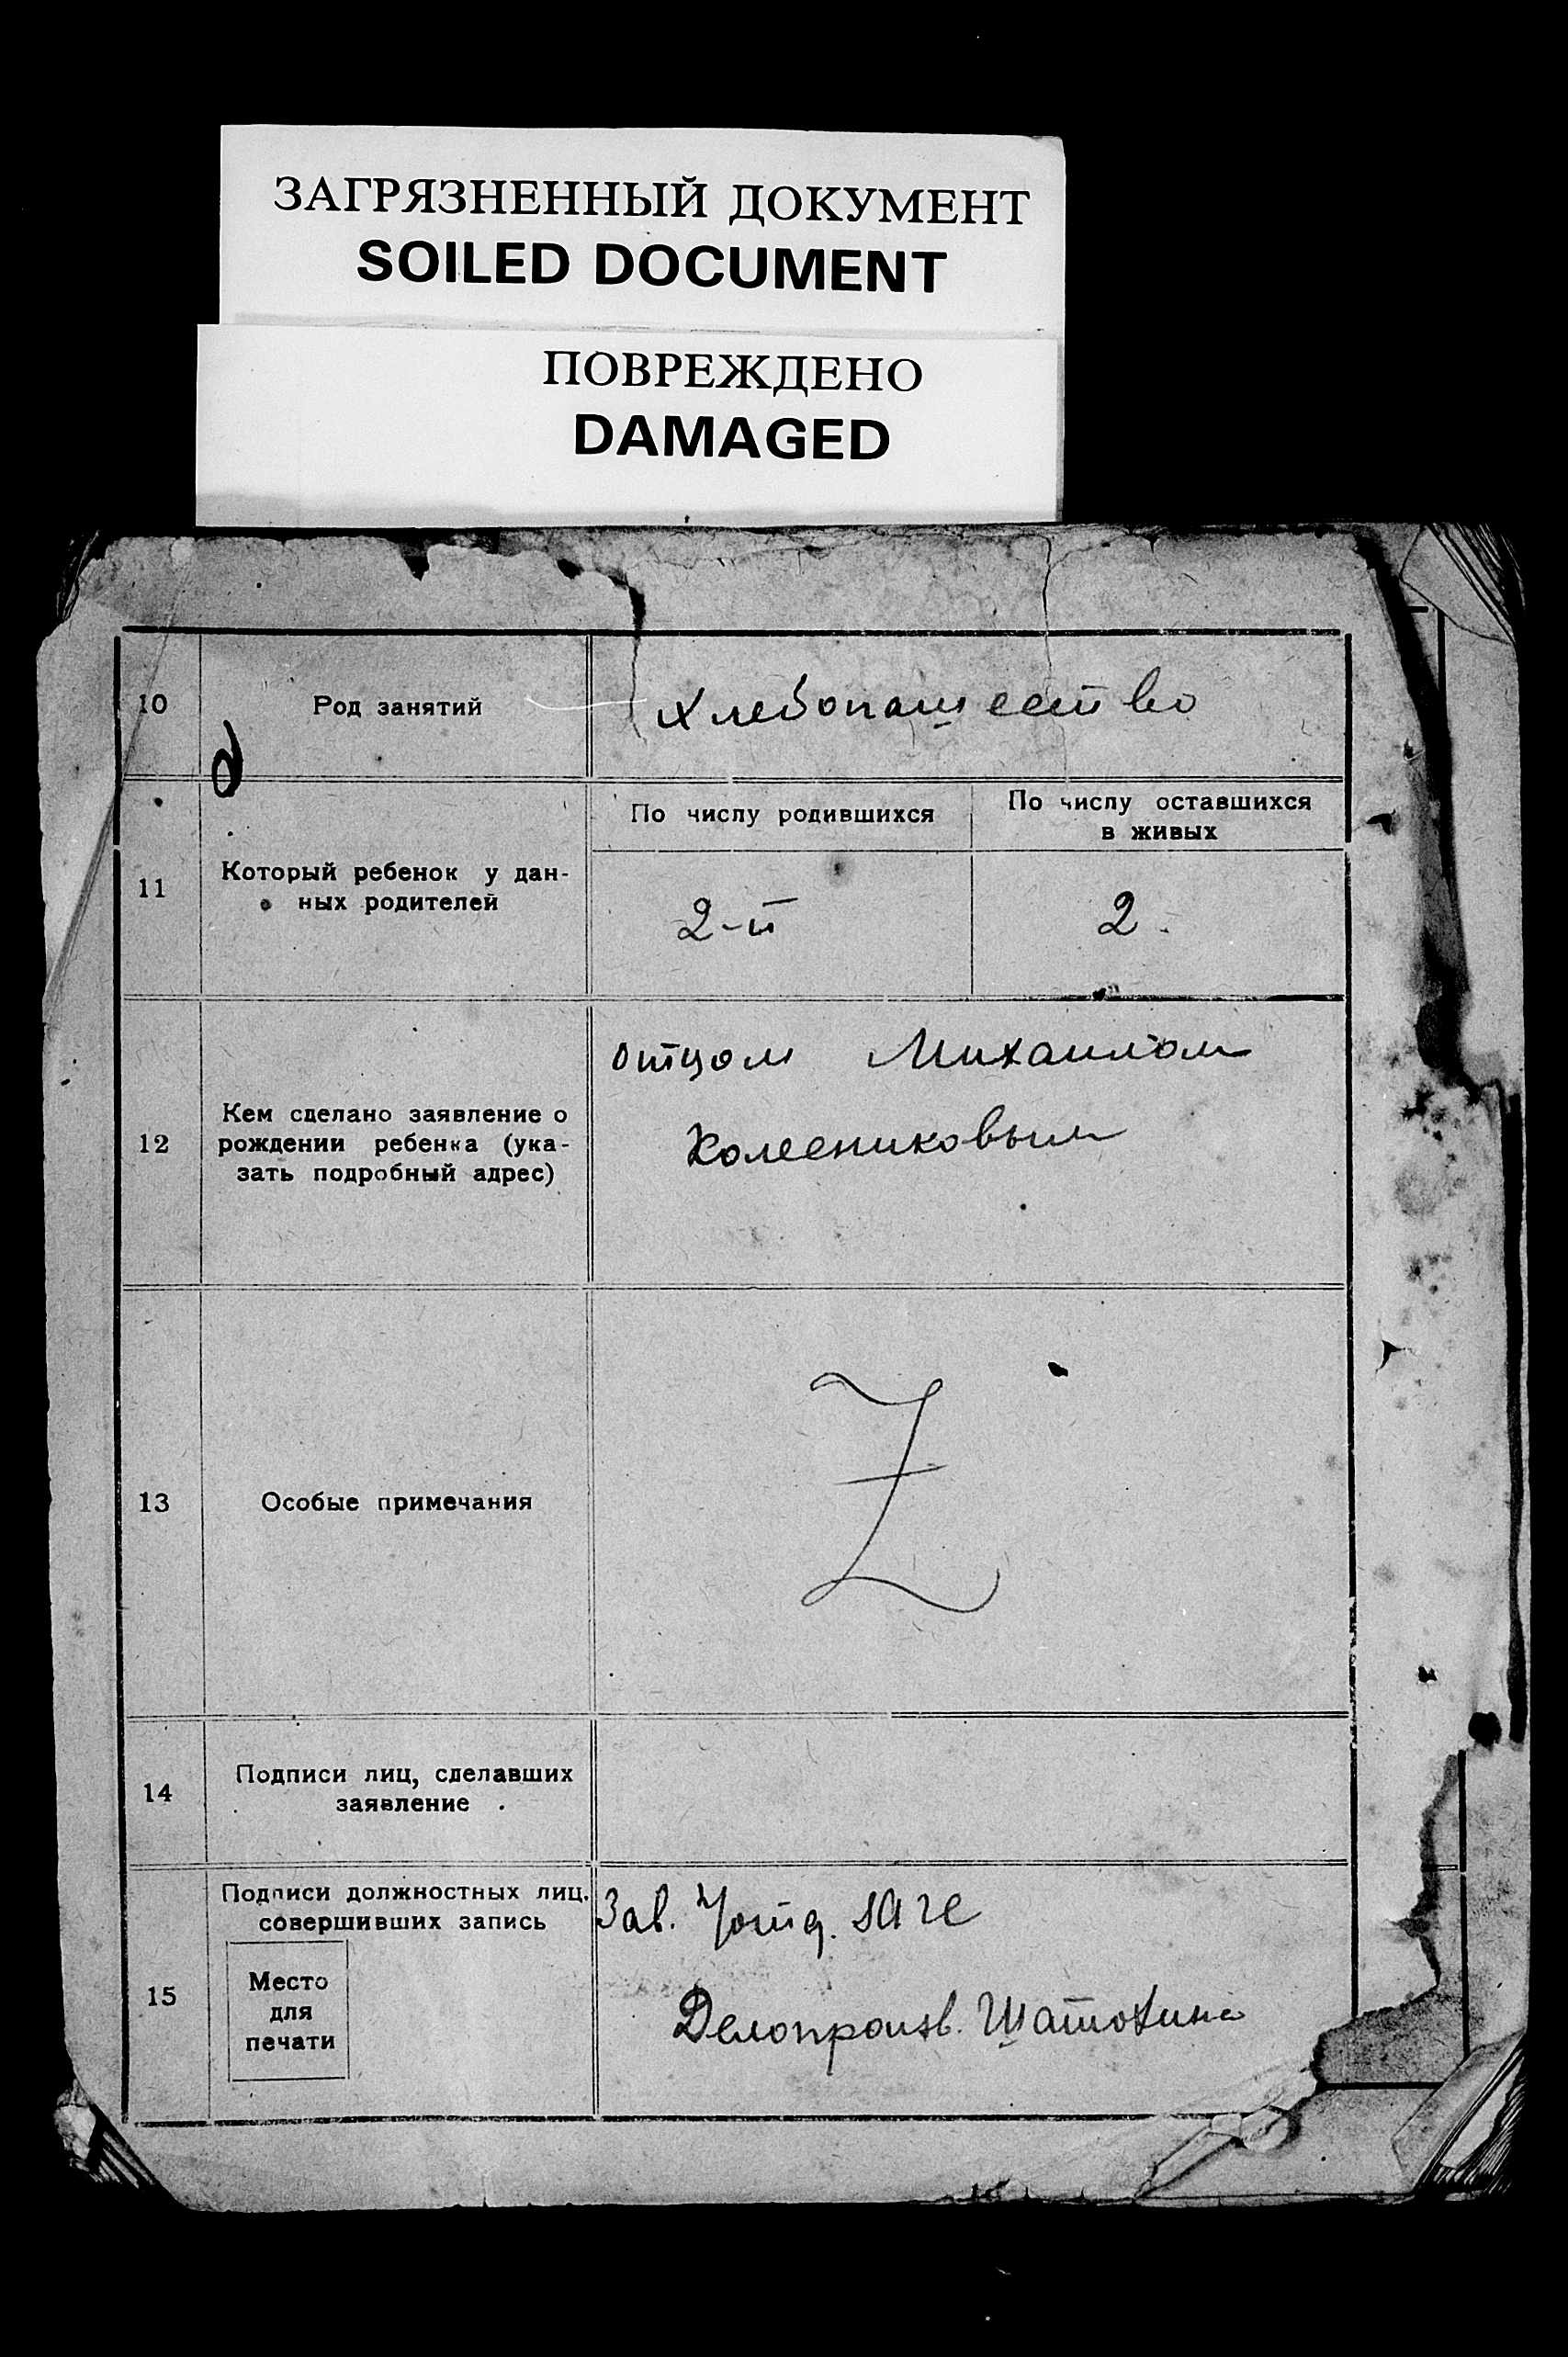 ЗАГРЯЗНЕННЫЙ ДОКУМЕНТ
SOILED DOCUMENT
ПОВРЕЖДЕНО
DAMAGED
10
Род занятий
Хлебопашество
11
Который ребенок у дан-
ных родителей
По числу родившихся
По числу оставшихся
в живых
2-й
2.
12
Кем сделано заявление о
рождении ребенка (ука-
зать подробный адрес)
отцом Михаилом
Колесниковым
13
Особые примечания
Z
14
Подписи лиц, сделавших
заявление
15
Подписи должностных лиц,
совершивших запись
Место
для
печати
Зав.
Делопроизв. Шатохина